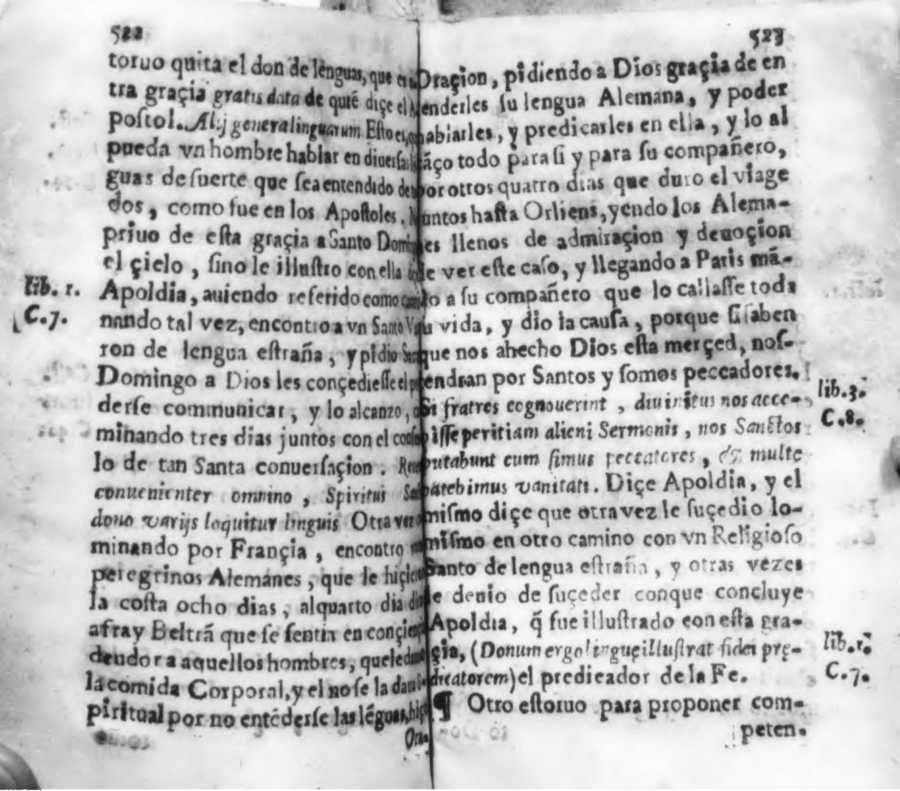 522
toruo quita el don de lẽguas, que es
tra graçia gratis data de quiẽ diçe el
postol. Alij genera linguarum Esto es,
pueda vn hombre hablar en diuersas
guas de suerte que sea entendido de
dos, como fue en los Apostoles.
priuo de esta graçia a Santo Domin
el çielo, sino le illustro con ella
Apoldia, auiendo referido como cami
nando tal vez, encontro a vn Santo
ron de lengua estraña, y pidio
Domingo a Dios les conçediesse el
derse communicar, y lo alcanzo,
minando tres dias juntos con el
lo de tan Santa conuersaçion.
conuenienter omnino, Spiritus
dono varijs loquitur linguis Otra vez
minando por Françia, encontro
peregrinos Alemánes, que le hiçieron
la costa ocho dias, alquarto dia
afray Beltrã que se sentia en conçien
deudor a aquellos hombres, que le dauan
la comida Corporal, y el no se la daua
piritual por no entẽderse las lẽguas,
Ora-
523
Oraçion, pidiendo a Dios graçia de en
tenderles su lengua Alemana, y poder
hablarles, y predicarles en ella, y lo al
cãço todo para si y para su compañero,
por otros quatro dias que duro el viage
juntos hasta Orliens, yendo los Alema-
nes llenos de admiraçion y deuoçion
de ver este caso, y llegando a Paris mã-
do a su compañero que lo callasse toda
su vida, y dio la causa, porque si saben
que nos ahecho Dios esta merçed, nos-
tendran por Santos y somos peccadores.
Si fratres cognouerint, diuinitus nos acce-
pisse peritiam alieni Sermonis, nos Sanctos
putabunt cum simus peccatores, & multe
patebimus vanitati. Diçe Apoldia, y el
mismo diçe que otra vez le suçedio lo-
mismo en otro camino con vn Religioso
Santo de lengua estraña, y otras vezes
le deuio de suçeder conque concluye
Apoldia, q̃ fue illustrado con esta gra-
çia, (Donum ergo linguę illustrat fidei prę-
dicatorem) el predicador de la Fe.
¶ Otro estoruo para proponer com-
peten-
lib. 1.
C. 7.
lib. 3.
C. 8.
lib. 1.
C. 7.